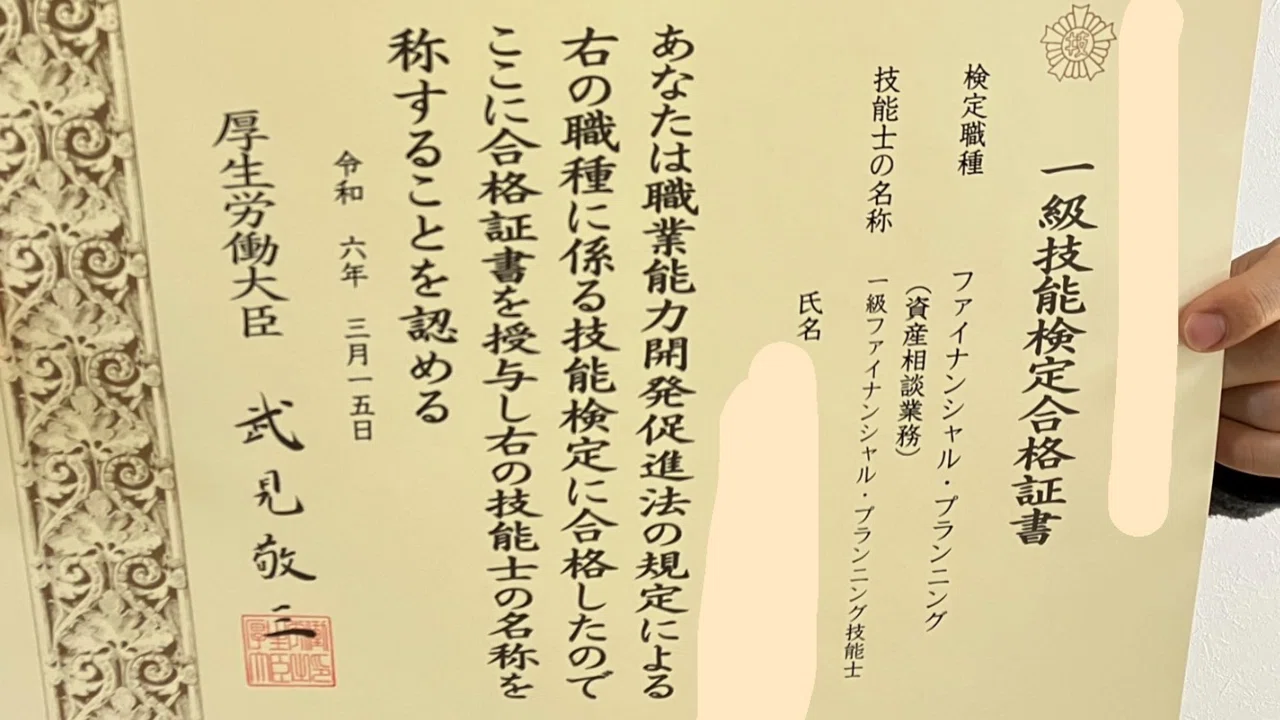 一級技能検定合格証書
検定職種
ファイナンシャル・プランニング
（資産相談業務）
技能士の名称
一級ファイナンシャル・プランニング技能士
氏名
あなたは職業能力開発促進法の規定による
右の職種に係る技能検定に合格したので
ここに合格証書を授与し右の技能士の名称を
称することを認める
令和 六年 三月一五日
厚生労働大臣 武見敬三